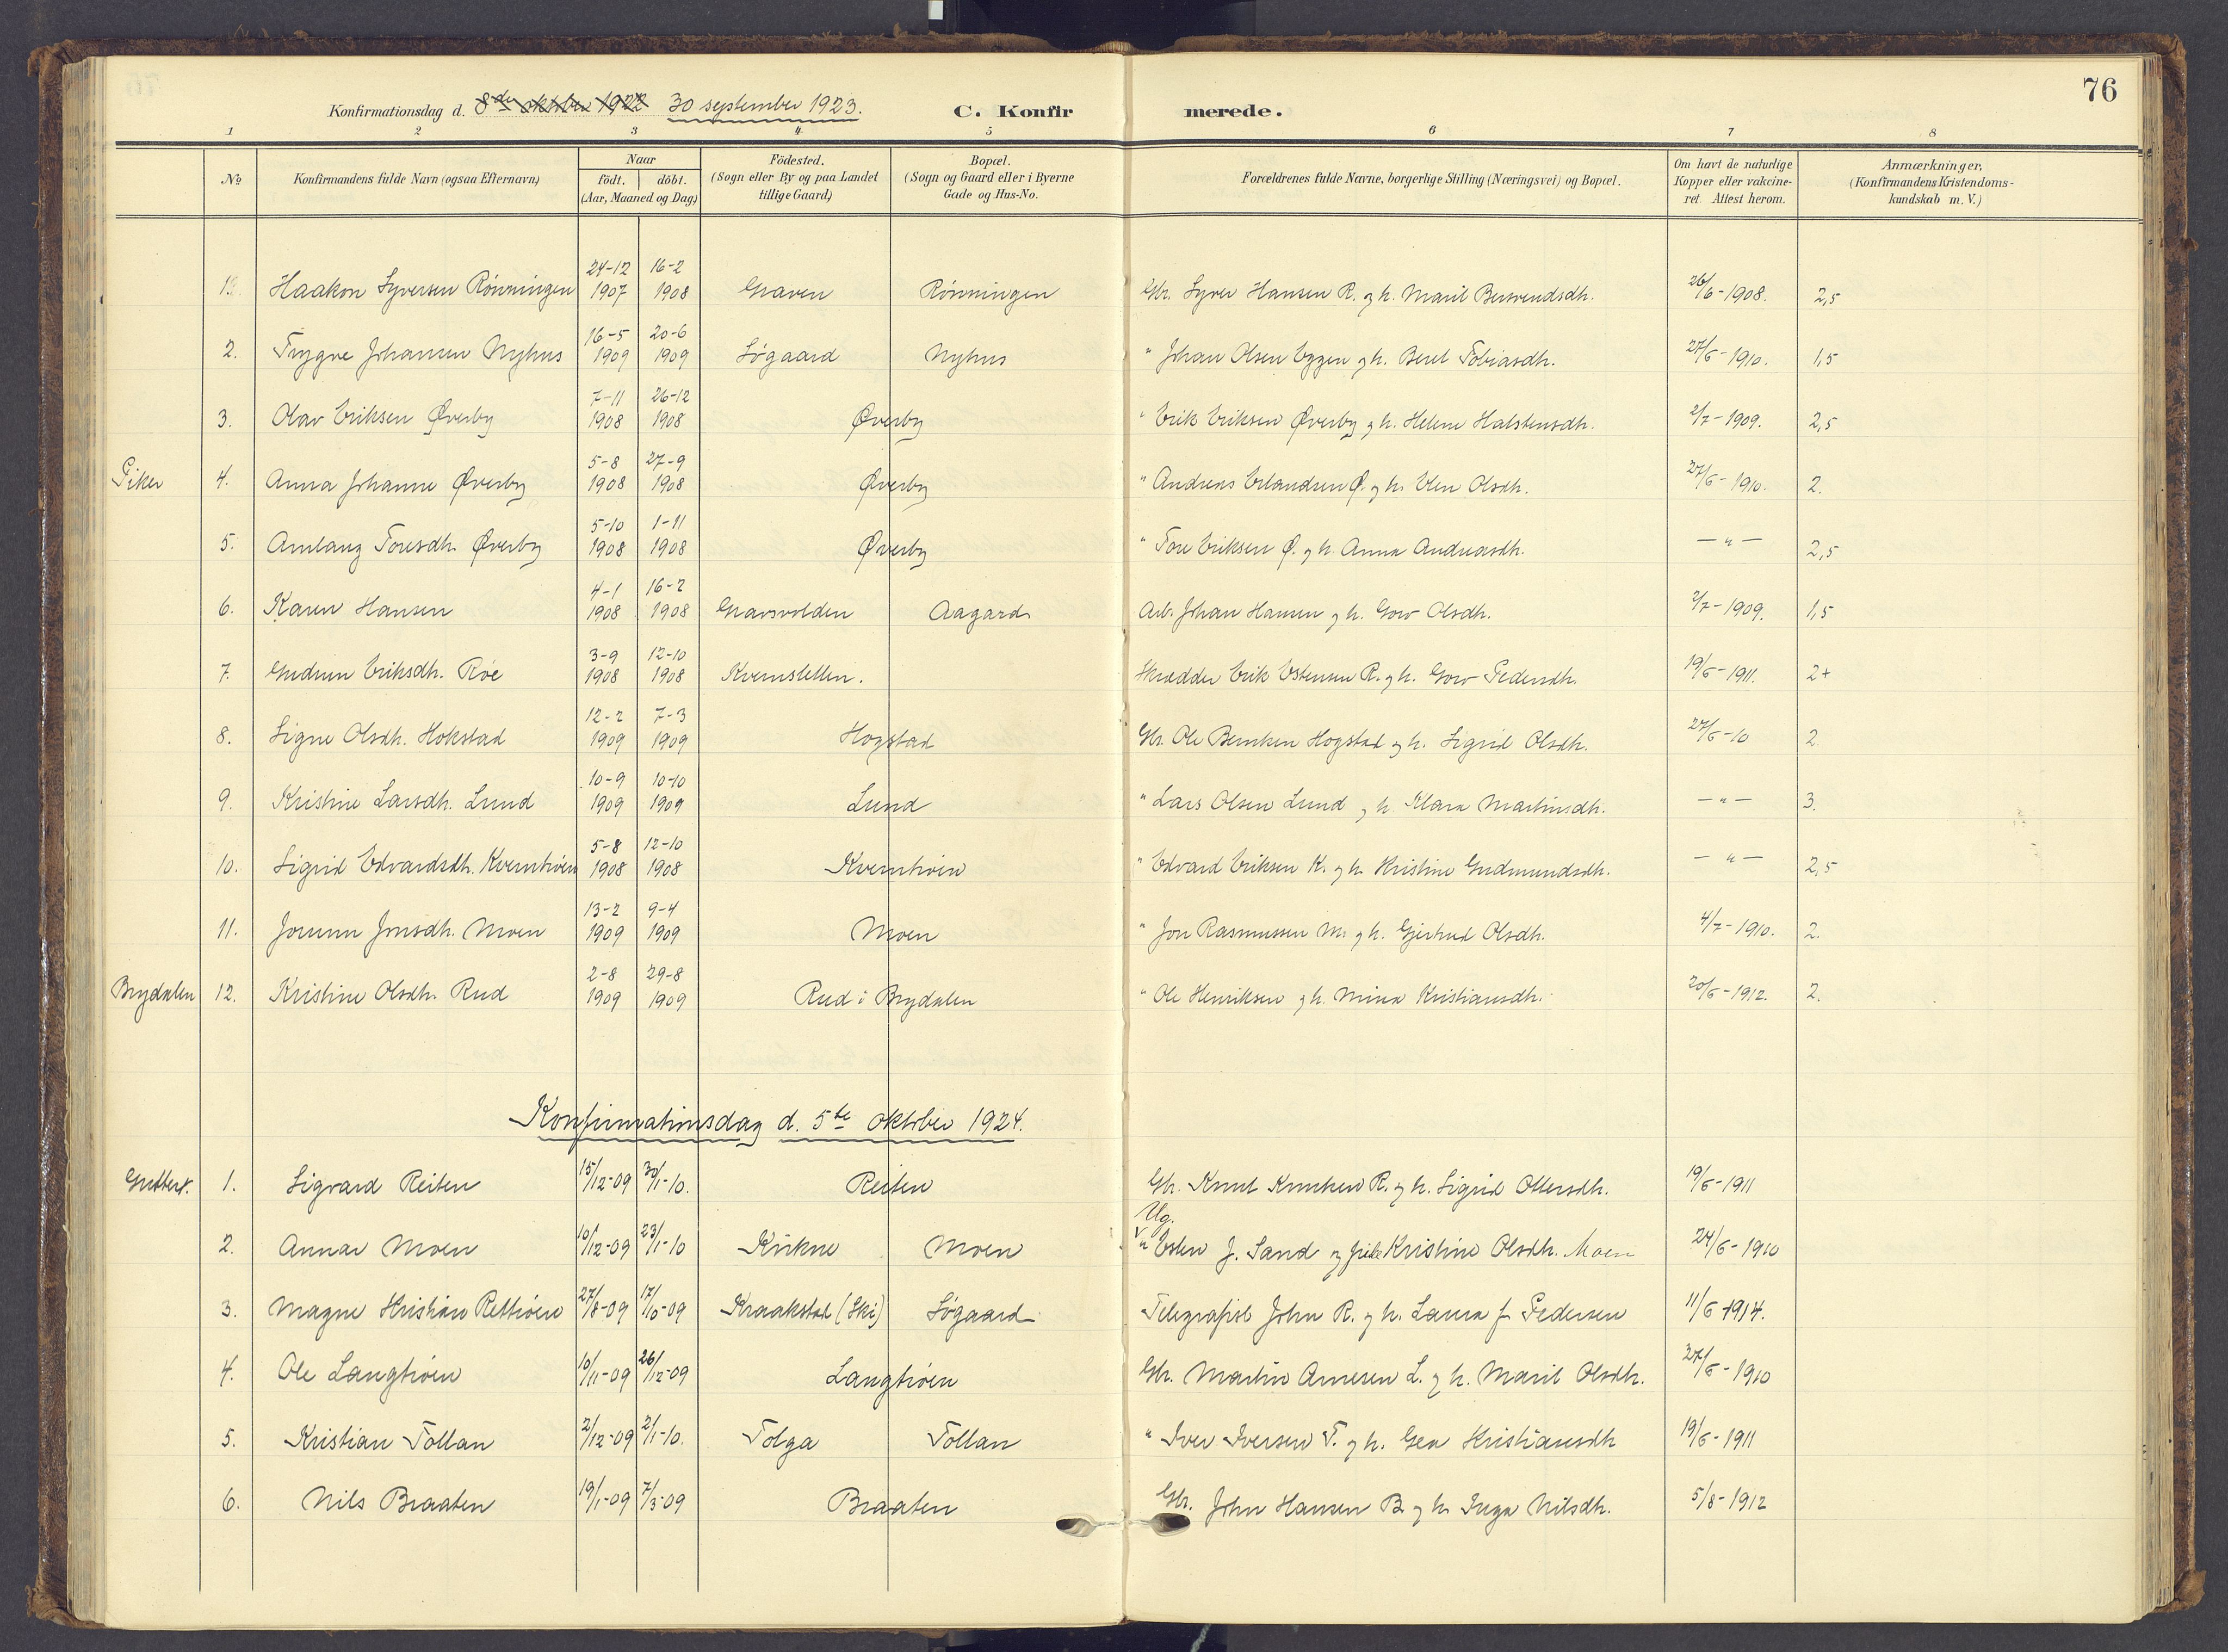 76
Konfirmationsdag d. 8de oktober 1922 30 september 1923. C. Konfirmerede.
1 2 3 4 5 6 7 8
No Konfirmandens fulde Navn (ogsaa Efternavn) Naar födt. döbt. (Aar, Maaned og Dag) Födested. (Sogn eller By og paa Landet tillige Gaard) Bopæl. (Sogn og Gaard eller i Byerne Gade og Hus-No. Forældrenes fulde Navne, borgerlige Stilling (Næringsvei) og Bopæl. Om havt de naturlige Kopper eller vakcineret. Attest herom. Anmærkninger, (Konfirmandens Kristendomskundskab m. V.)
1. Haakon Syversen Rönningen 24-12 1907 16-2 1908 Graven Rönningen Gbr. Syver Hansen R. og h. Marit Bersvendsdh. 26/6-1908. 2,5
2. Trygve Johansen Nyhus 16-5 1909 20-6 1909 Søgaard Nyhus " Johan Olsen Eggen og h. Beret Tobiasdh. 27/6-1910. 1,5
3. Olav Eriksen Øverby 7-11 1908 26-12 1908 Øverby " Erik Eriksen Øverby og h. Helene Halstensdh. 2/7-1909. 2,5
Piker 4. Anna Johanne Øverby 5-8 1908 27-9 1908 Øverby " Andreas Erlandsen Ø. og h. Elen Olsdh. 27/6-1910. 2.
5. Arnlaug Toresdh. Øverby 5-10 1908 1-11 1908 Øverby " Tore Eriksen Ø. og h. Anna Andreasdh. — " — 2,5
6. Karen Hansen 4-1 1908 16-2 1908 Gravsvolden Aagard Arb. Johan Hansen og h. Goro Olsdh. 2/7-1909. 1,5
7. Gudrun Eriksdh. Röe 3-9 1908 12-10 1908 Kvernsletten. Skrædder Erik Estensen R. og h. Goro Pedersdh. 19/6-1911. 2+
8. Signe Olsdh. Hokstad 12-2 1909 7-3 1909 Hogstad Gbr. Ole Berntsen Hogstad og h. Sigrid Olsdh. 27/6-10 2.
9. Kristine Larsdh. Lund 10-9 1909 10-10 1909 Lund " Lars Olsen Lund og h. Klara Martinsdh. — " — 3.
10. Sigrid Edvardsdh. Kverntröen 5-8 1908 12-10 1908 Kverntröen " Edvard Eriksen K. og h. Kristine Gudmundsdh. — " — 2,5
11. Jorunn Jonsdh. Moen 13-2 1909 9-4 1909 Moen " Jon Rasmussen M. og h. Gjertrud Olsdh. 4/7-1910. 2.
Brydalen 12. Kristine Olsdh. Rud 2-8 1909 29-8 1909 Rud i Brydalen " Ole Henriksen og h. Mina Kristiansdh. 20/6-1912. 2.
Konfirmationsdag d. 5te oktober 1924.
Gutter. 1. Sigvard Reiten 15/12-09 30/1-10. Reiten Gbr. Knut Knutsen R. og h. Sigrid Ottersdh. 19/6-1911
2. Annar Moen 10/12-09 23/1-10 Kirkne Moen Ug. " Esten J. Sand og pike Kristine Olsdh. Moen 24/6-1910
3. Magne Kristian Rettröen 27/8-09 17/10-09 Kraakstad (Ski) Søgaard Telegrafist John R. og h. Laura f. Pedersen 11/6-1914.
4. Ole Langtröen 10/11-09 26/12-09 Langtröen Gbr. Martin Arnesen L. og h. Marit Olsdh. 27/6-1910
5. Kristian Tollan 2/12-09 2/1-10. Tolga Tollan " Iver Iversen T. og h. Gea Kristiansdh 19/6-1911
6. Nils Braaten 19/1-09 7/3-09 Braaten Gbr. John Hansen B. og h. Inga Nilsdh. 5/8-1912